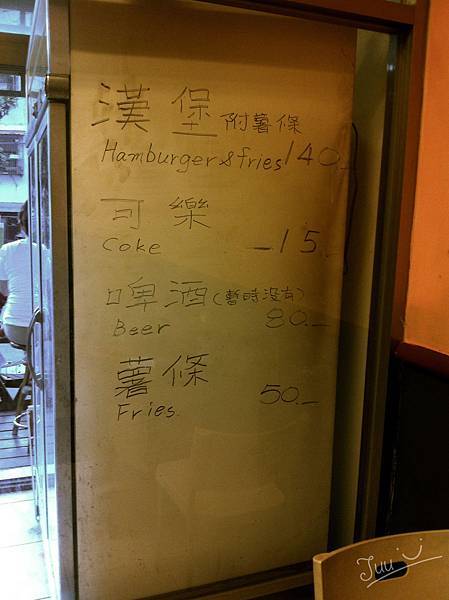 漢堡附薯條
Hamburger & fries 140.-
可樂
Coke -15.-
啤酒(暫時沒有)
Beer 80.-
薯條
Fries. 50.-
Juu